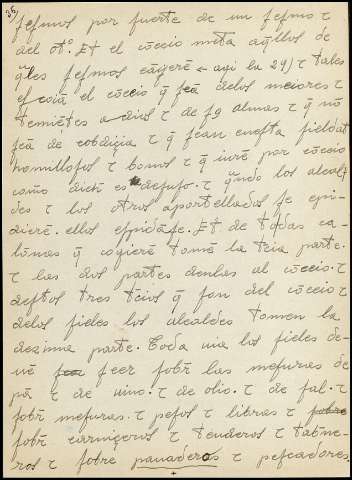 36)
feſmos por fuerte de un feſmo τ
del otº. Et el cōceio meta aq̃llos de
q̃les feſmos cayerē (– aqi la 24) τ tales
el catā el cōceio q̃ ſeā delos meiores τ
temiētes a dios τ de ſꝰ almas τ q̃ nō
ſeā de cobdiçia τ q̃ ſean eneſta fieldat
homilloſos τ bonos τ q̃ iurē por cōceio
como dicħ es deſuſo. τ q̃ndo los alcall
des τ los otros aportellados ſe eſpi
dierē. ellos eſpidāſe. Et de todas ca-
lōnas q̃ cogierē tomē la t̃cia parte.
τ las dos partes denlas al cōceio. τ
deſtos tres t̃cios q̃ ſon del cōceio τ
delos fieles los alcaldes tomen la
dezima parte. Toda uia los fieles de-
uē ſeer ſobr̃ las meſuras de
pā τ de uino. τ de olio. τ de ſal. τ
ſobr̃ meſuras. τ peſos τ libras τ
ſobr̃ carniçeros τ tenderos τ tab̃ne-
ros τ ſobre panaderos τ peſcadores.
+